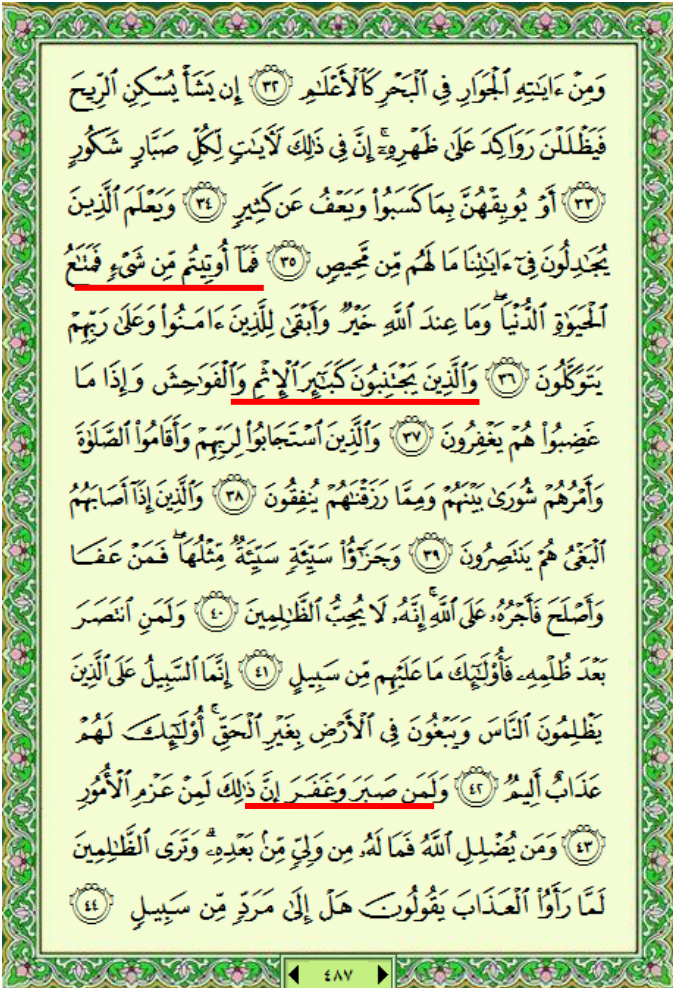 وَمِنْ ءَايَٰتِهِ ٱلْجَوَارِ فِى ٱلْبَحْرِ كَٱلْأَعْلَٰمِ ٣٢ إِن يَشَأْ يُسْكِنِ ٱلرِّيحَ
فَيَظْلَلْنَ رَوَاكِدَ عَلَىٰ ظَهْرِهِۦٓ ۚ إِنَّ فِى ذَٰلِكَ لَءَايَٰتٍ لِّكُلِّ صَبَّارٍ شَكُورٍ
٣٣ أَوْ يُوبِقْهُنَّ بِمَا كَسَبُوا۟ وَيَعْفُ عَن كَثِيرٍ ٣٤ وَيَعْلَمَ ٱلَّذِينَ
يُجَٰدِلُونَ فِىٓ ءَايَٰتِنَا مَا لَهُم مِّن مَّحِيصٍ ٣٥ فَمَآ أُوتِيتُم مِّن شَىْءٍ فَمَتَٰعُ
ٱلْحَيَوٰةِ ٱلدُّنْيَا ۖ وَمَا عِندَ ٱللَّهِ خَيْرٌ وَأَبْقَىٰ لِلَّذِينَ ءَامَنُوا۟ وَعَلَىٰ رَبِّهِمْ
يَتَوَكَّلُونَ ٣٦ وَٱلَّذِينَ يَجْتَنِبُونَ كَبَٰٓئِرَ ٱلْإِثْمِ وَٱلْفَوَٰحِشَ وَإِذَا مَا
غَضِبُوا۟ هُمْ يَغْفِرُونَ ٣٧ وَٱلَّذِينَ ٱسْتَجَابُوا۟ لِرَبِّهِمْ وَأَقَامُوا۟ ٱلصَّلَوٰةَ
وَأَمْرُهُمْ شُورَىٰ بَيْنَهُمْ وَمِمَّا رَزَقْنَٰهُمْ يُنفِقُونَ ٣٨ وَٱلَّذِينَ إِذَآ أَصَابَهُمُ
ٱلْبَغْىُ هُمْ يَنتَصِرُونَ ٣٩ وَجَزَٰٓؤُا۟ سَيِّئَةٍ سَيِّئَةٌ مِّثْلُهَا ۖ فَمَنْ عَفَا
وَأَصْلَحَ فَأَجْرُهُۥ عَلَى ٱللَّهِ ۚ إِنَّهُۥ لَا يُحِبُّ ٱلظَّٰلِمِينَ ٤٠ وَلَمَنِ ٱنتَصَرَ
بَعْدَ ظُلْمِهِۦ فَأُو۟لَٰٓئِكَ مَا عَلَيْهِم مِّن سَبِيلٍ ٤١ إِنَّمَا ٱلسَّبِيلُ عَلَى ٱلَّذِينَ
يَظْلِمُونَ ٱلنَّاسَ وَيَبْغُونَ فِى ٱلْأَرْضِ بِغَيْرِ ٱلْحَقِّ ۚ أُو۟لَٰٓئِكَ لَهُمْ
عَذَابٌ أَلِيمٌ ٤٢ وَلَمَن صَبَرَ وَغَفَرَ إِنَّ ذَٰلِكَ لَمِنْ عَزْمِ ٱلْأُمُورِ
٤٣ وَمَن يُضْلِلِ ٱللَّهُ فَمَا لَهُۥ مِن وَلِىٍّ مِّنۢ بَعْدِهِۦ ۗ وَتَرَى ٱلظَّٰلِمِينَ
لَمَّا رَأَوُا۟ ٱلْعَذَابَ يَقُولُونَ هَلْ إِلَىٰ مَرَدٍّ مِّن سَبِيلٍ ٤٤
٤٨٧